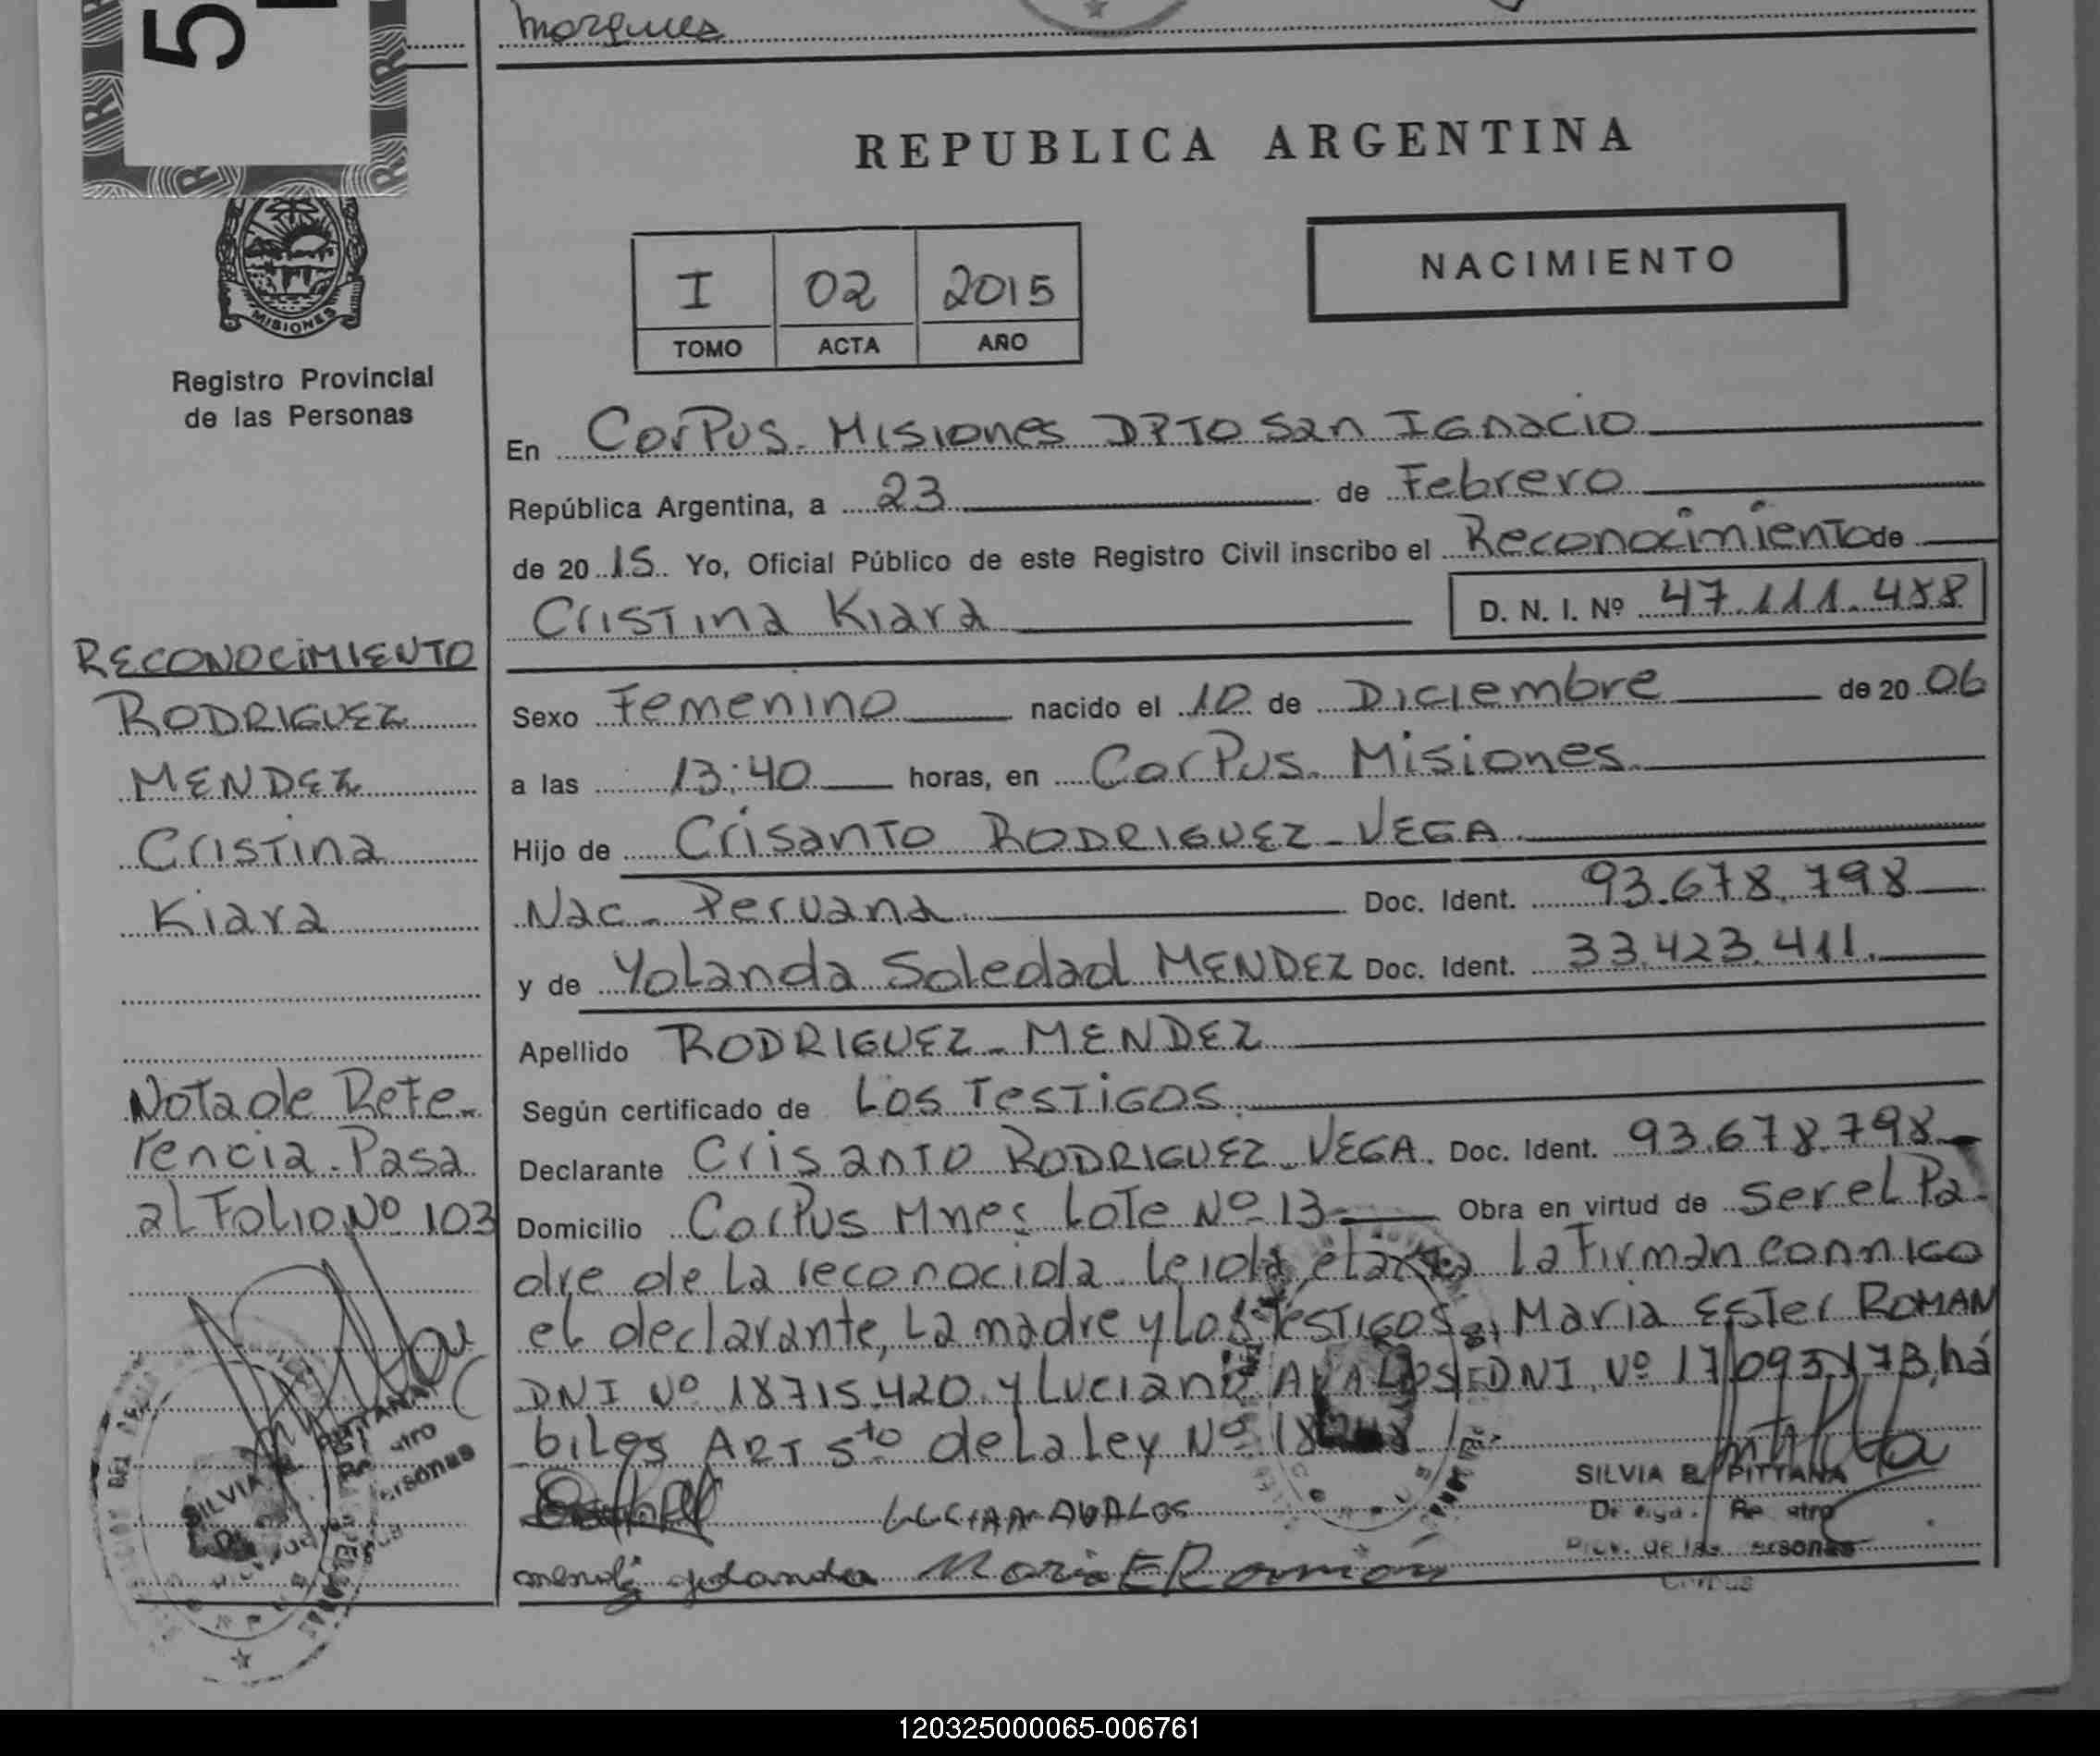 5
marques
REPUBLICA ARGENTINA
I 02 2015
TOMO ACTA AÑO
NACIMIENTO
MISIONES
Registro Provincial
de las Personas
RECONOCIMIENTO
RODRIGUEZ
MENDEZ
Cristina
Kiara
Nota de Refe-
rencia. Pasa
al Folio Nº 103
En Corpus. Misiones DPTO San Ignacio
República Argentina, a 23 de Febrero
de 20 15. Yo, Oficial Público de este Registro Civil inscribo el Reconocimiento de
Cristina Kiara D. N. I. Nº 47.111.488
Sexo Femenino nacido el 10 de Diciembre de 20 06
a las 13:40 horas, en Corpus. Misiones.
Hijo de Crisanto RODRIGUEZ - VEGA.
Nac- Peruana Doc. Ident. 93.678.798
y de Yolanda Soledad MENDEZ Doc. Ident. 33.423.411.
Apellido RODRIGUEZ - MENDEZ
Según certificado de Los Testigos.
Declarante Crisanto RODRIGUEZ - VEGA. Doc. Ident. 93.678.798
Domicilio Corpus Mnes Lote Nº 13- Obra en virtud de ser el Pa-
dre de la reconocida. Leida el acta La Firman conmigo
el declarante, La madre y Los Testigos, Maria Ester ROMAN
DNI Nº 18715.420 y Luciano AVALOS DNI Nº 17.095.173, há
biles ART 5to de la Ley Nº
LUCIAN AVALOS
mendez yolanda Maria E Roman
SILVIA B. PITTANA
Registro
Prov. de las Personas
Corpus
SILVIA B. PITTANA
120325000065-006761